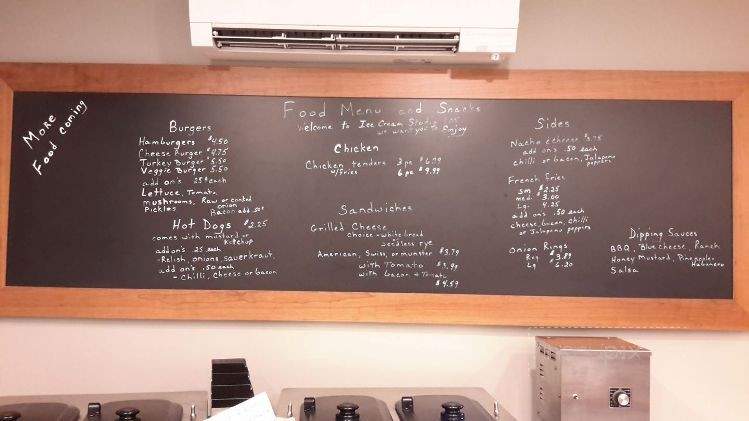 More
Food Coming
Food Menu and Snacks
Welcome to Ice Cream Studio
we want you to Enjoy
Burgers
Hamburgers $4.50
Cheese Burger $4.75
Turkey Burger 5.50
Veggie Burger 5.50
add on's 25¢ each
Lettuce, Tomato
mushrooms, Raw or cooked
onion
Pickles
Bacon add 50¢
Hot Dogs $2.25
comes with mustard or
Ketchup
add on's .25 each
-Relish, onions, sauerkraut.
add on's .50 each
- Chilli, Cheese or bacon
Chicken
Chicken tenders 3 pc $6.99
w/fries 6 pc $9.99
Sandwiches
Grilled Cheese
Choice - white bread
seedless rye
American, Swiss, or munster $3.79
with Tomato $3.99
with bacon + Tomato
$4.59
Sides
Nacho & cheese $3.75
add on's .50 each
chilli or bacon, Jalapeno
peppers
French Fries
sm $2.25
med. 3.00
Lg. 4.25
add ons .50 each
cheese, bacon, chilli
or Jalapeno peppers
Onion Rings
Reg $3.89
Lg 6.20
Dipping Sauces
BBQ, Blue cheese, Ranch
Honey Mustard, Pineapple
Habanero
Salsa